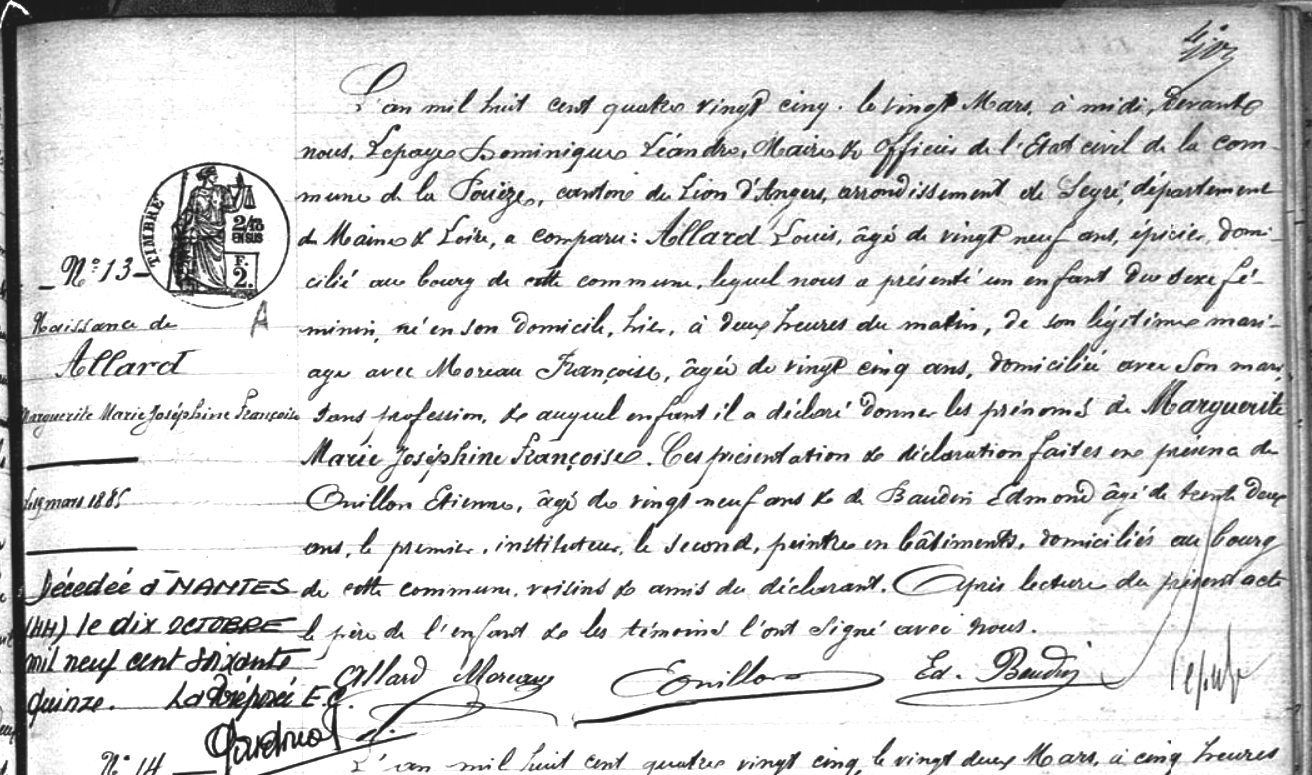 L'an mil huit cent quatre vingt cinq. le vingt Mars, à midi, devant
nous, Lepage Dominique Léandre, Maire & Officier de l'Etat civil de la com-
mune de la Pouëze, canton du Lion d'Angers, arrondissement de Segré, département
de Maine & Loire, a comparu: Allard Louis, âgé de vingt neuf ans, épicier, domi-
cilié au bourg de cette commune, lequel nous a présenté un enfant du sexe fé-
minin, né en son domicile, hier, à deux heures du matin, de son légitime mari-
age avec Moreau Françoise, âgée de vingt cinq ans, domiciliée avec son mari,
sans profession, & auquel enfant il a déclaré donner les prénoms de Marguerite
Marie Joséphine Françoise. Ces présentation & déclaration faites en présence de
Etienne, âgé de vingt neuf ans & de Baudin Edmond âgé de trente deux
ans, le premier, instituteur, le second, peintre en bâtiments, domiciliés au bourg
de cette commune, voisins & amis du déclarant. Après lecture du présent acte
le père de l'enfant & les témoins l'ont signé avec nous.
Allard Moreau Ed. Baudin
TIMBRE
2/10
EN SUS
F.
2.
N° 13
A
Naissance de
Allard
Marguerite Marie Joséphine Françoise
le 19 mars 1885
Décédée à NANTES
(44) le dix OCTOBRE
mil neuf cent soixante
quinze. La Préposée E.C.
N° 14
L'an mil huit cent quatre vingt cinq, le vingt deux Mars, à cinq heures